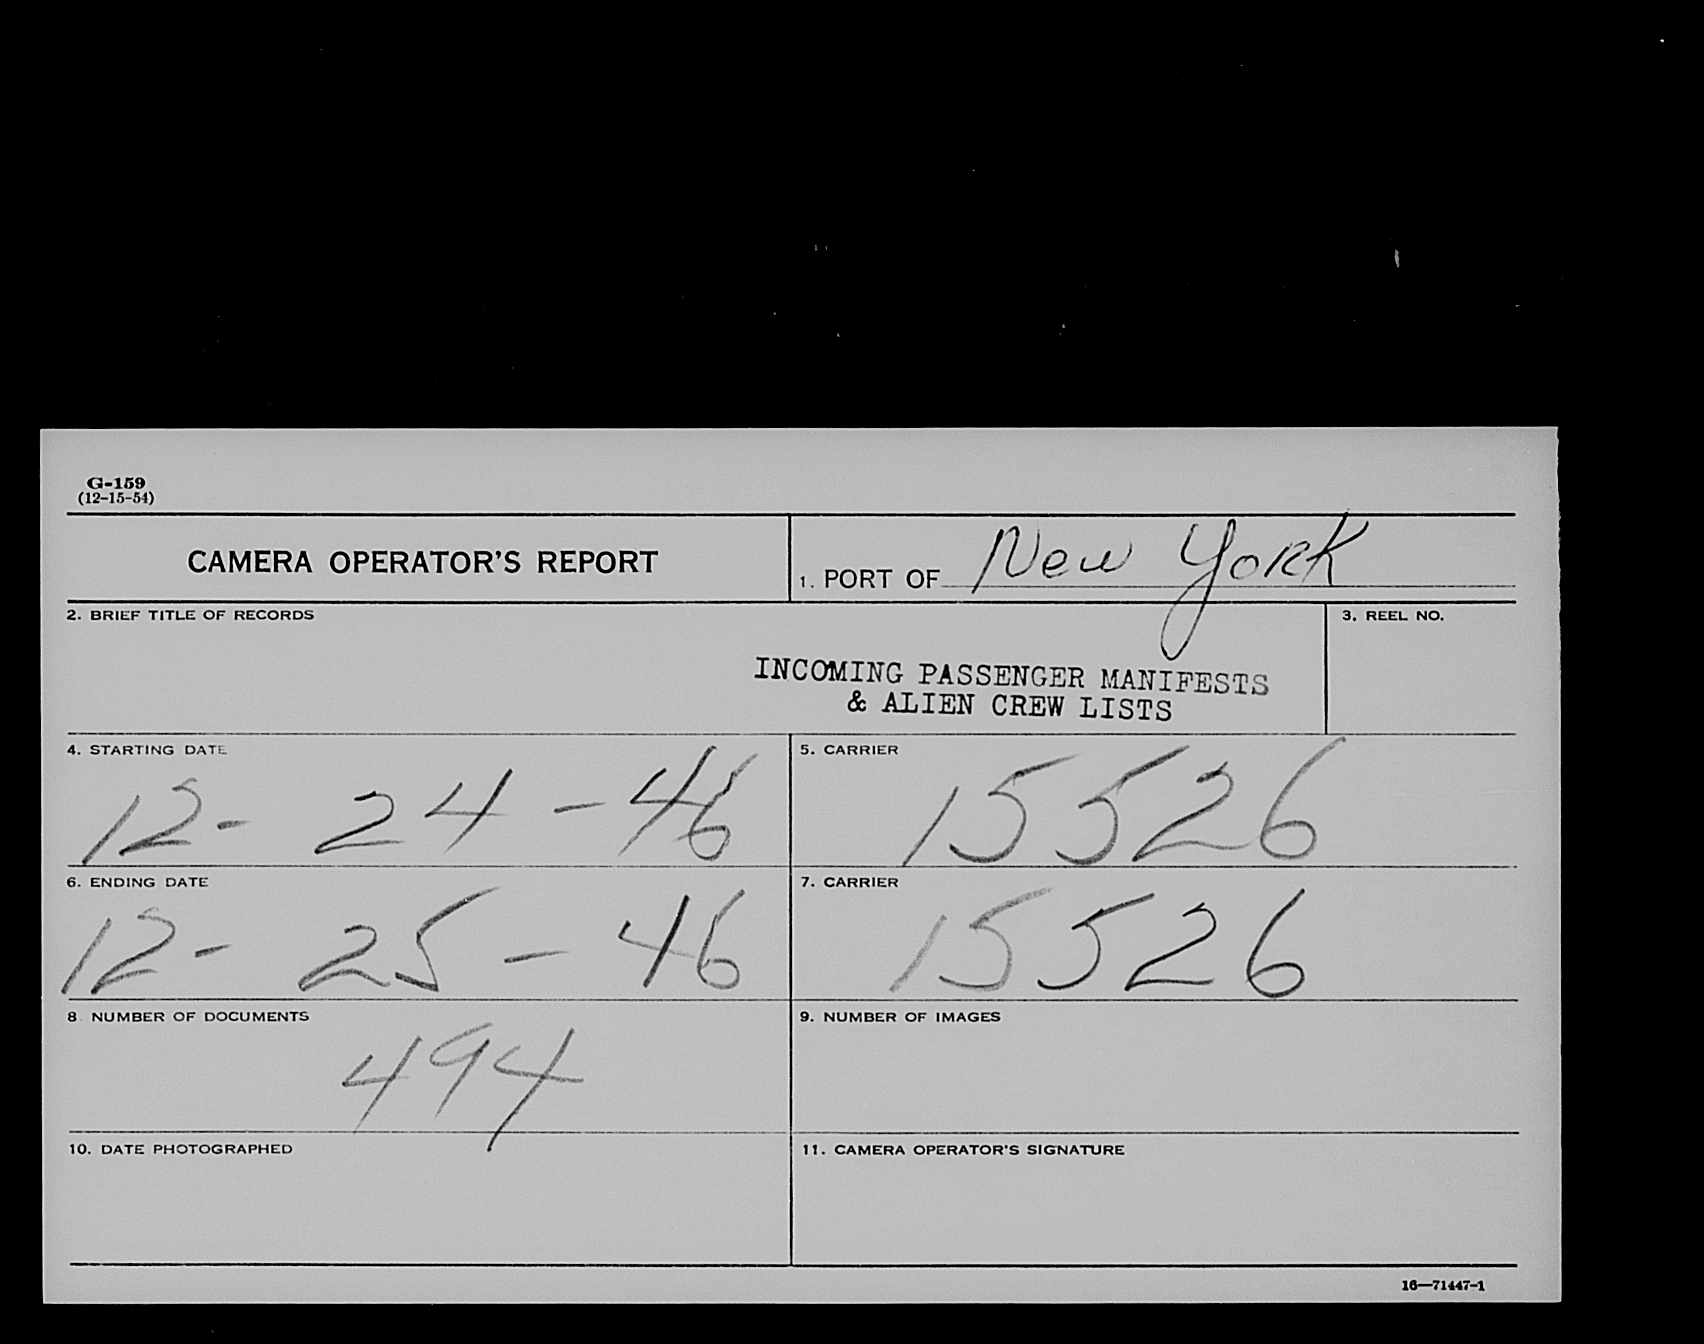 G-159
(12-15-54)
CAMERA OPERATOR'S REPORT
1. PORT OF New York
2. BRIEF TITLE OF RECORDS
3. REEL NO.
INCOMING PASSENGER MANIFESTS
& ALIEN CREW LISTS
4. STARTING DATE
12- 24-46
5. CARRIER
15526
6. ENDING DATE
12- 25-46
7. CARRIER
15526
8 NUMBER OF DOCUMENTS
494
9. NUMBER OF IMAGES
10. DATE PHOTOGRAPHED
11. CAMERA OPERATOR'S SIGNATURE
16—71447-1